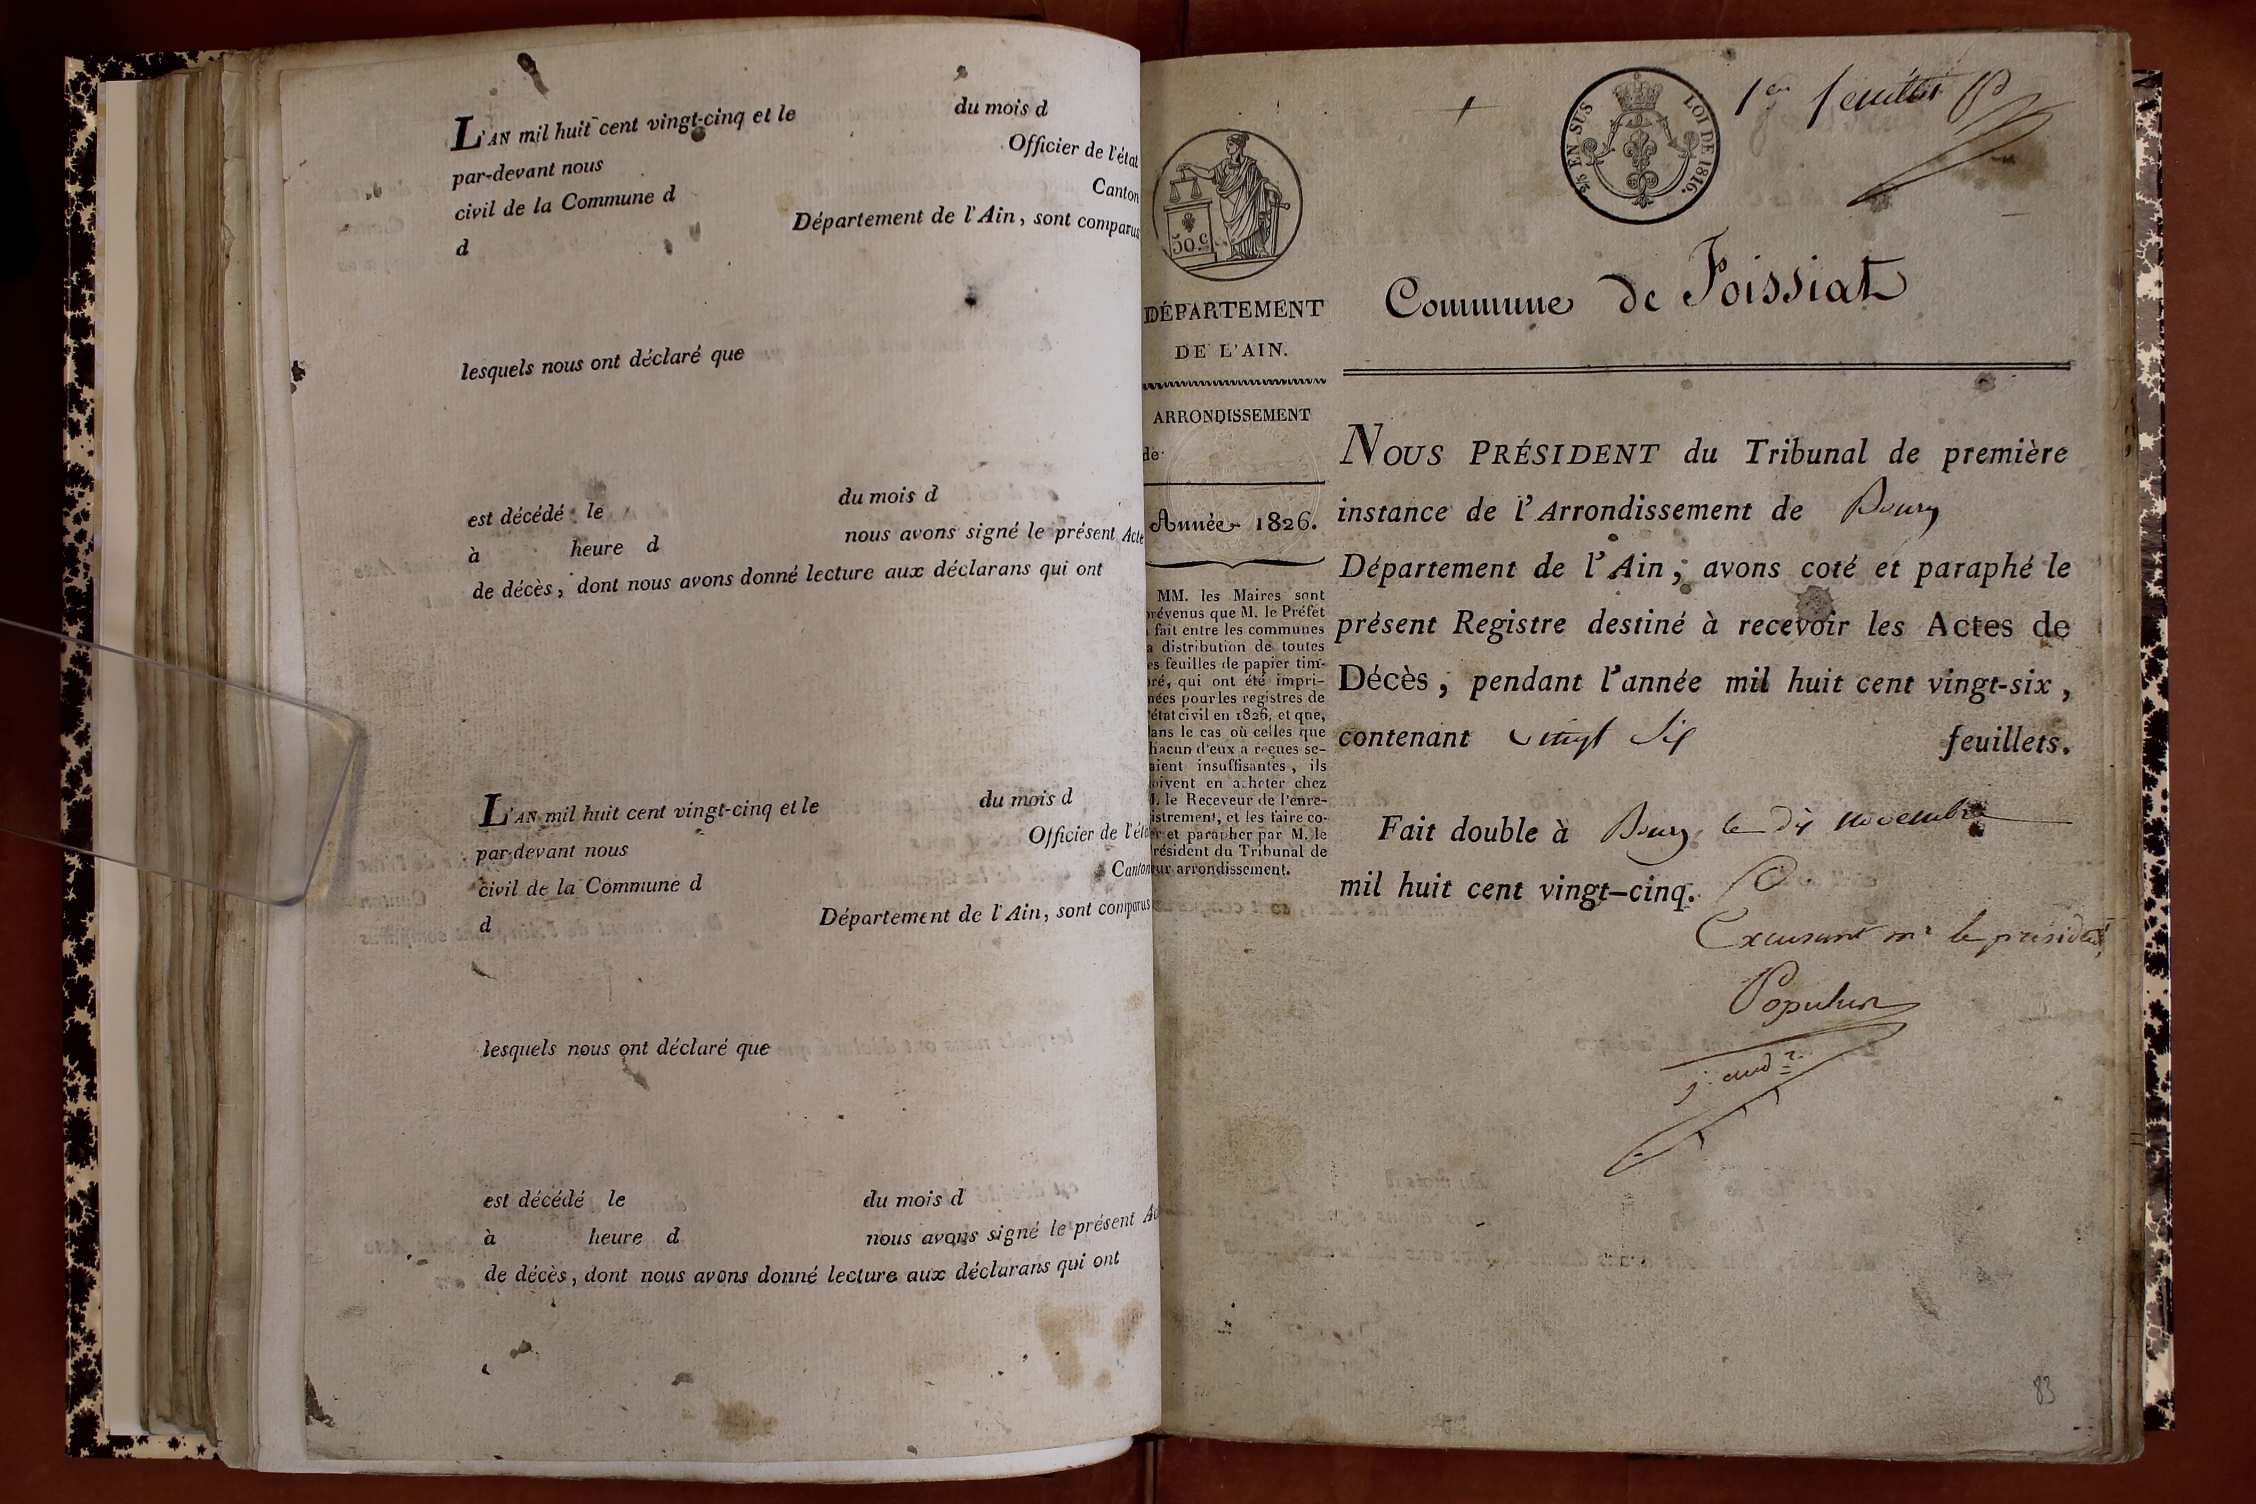 L'AN mil huit cent vingt-cinq et le du mois d
par-devant nous Officier de l'état
civil de la Commune d Canton
d Département de l'Ain, sont comparus
lesquels nous ont déclaré que
est décédé le du mois d
à heure d nous avons signé le présent Acte
de décès, dont nous avons donné lecture aux déclarans qui ont
L'AN mil huit cent vingt-cinq et le du mois d
par-devant nous Officier de l'éta
civil de la Commune d Canton
d Département de l'Ain, sont comparus
lesquels nous ont déclaré que
est décédé le du mois d
à heure d nous avons signé le présent Ac
de décès, dont nous avons donné lecture aux déclarans qui ont
1er feuillet
2/5 EN SUS LOI DE 1816.
50.c
DÉPARTEMENT
DE L'AIN.
ARRONDISSEMENT
de
Année 1826.
MM. les Maires sont
prévenus que M. le Préfet
fait entre les communes
a distribution de toutes
es feuilles de papier tim-
ré, qui ont été impri-
mées pour les registres de
l'état civil en 1826, et que,
dans le cas où celles que
chacun d'eux a reçues se-
raient insuffisantes, ils
doivent en acheter chez
M. le Receveur de l'enre-
istrement, et les faire co-
er et parapher par M. le
résident du Tribunal de
eur arrondissement.
Commune de Foissiat
NOUS PRÉSIDENT du Tribunal de première
instance de l'Arrondissement de Bourg
Département de l'Ain, avons coté et paraphé le
présent Registre destiné à recevoir les Actes de
Décès, pendant l'année mil huit cent vingt-six,
contenant vingt six feuillets.
Fait double à Bourg, le dix novembre
mil huit cent vingt-cinq.
Excusant mr le président
Populus
j. audr
83